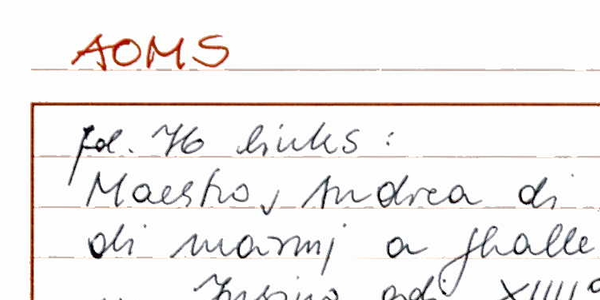 AOMS
fol. 76 links:
Maestro, Andrea di
di marmj a ghalle
adi XIIII°